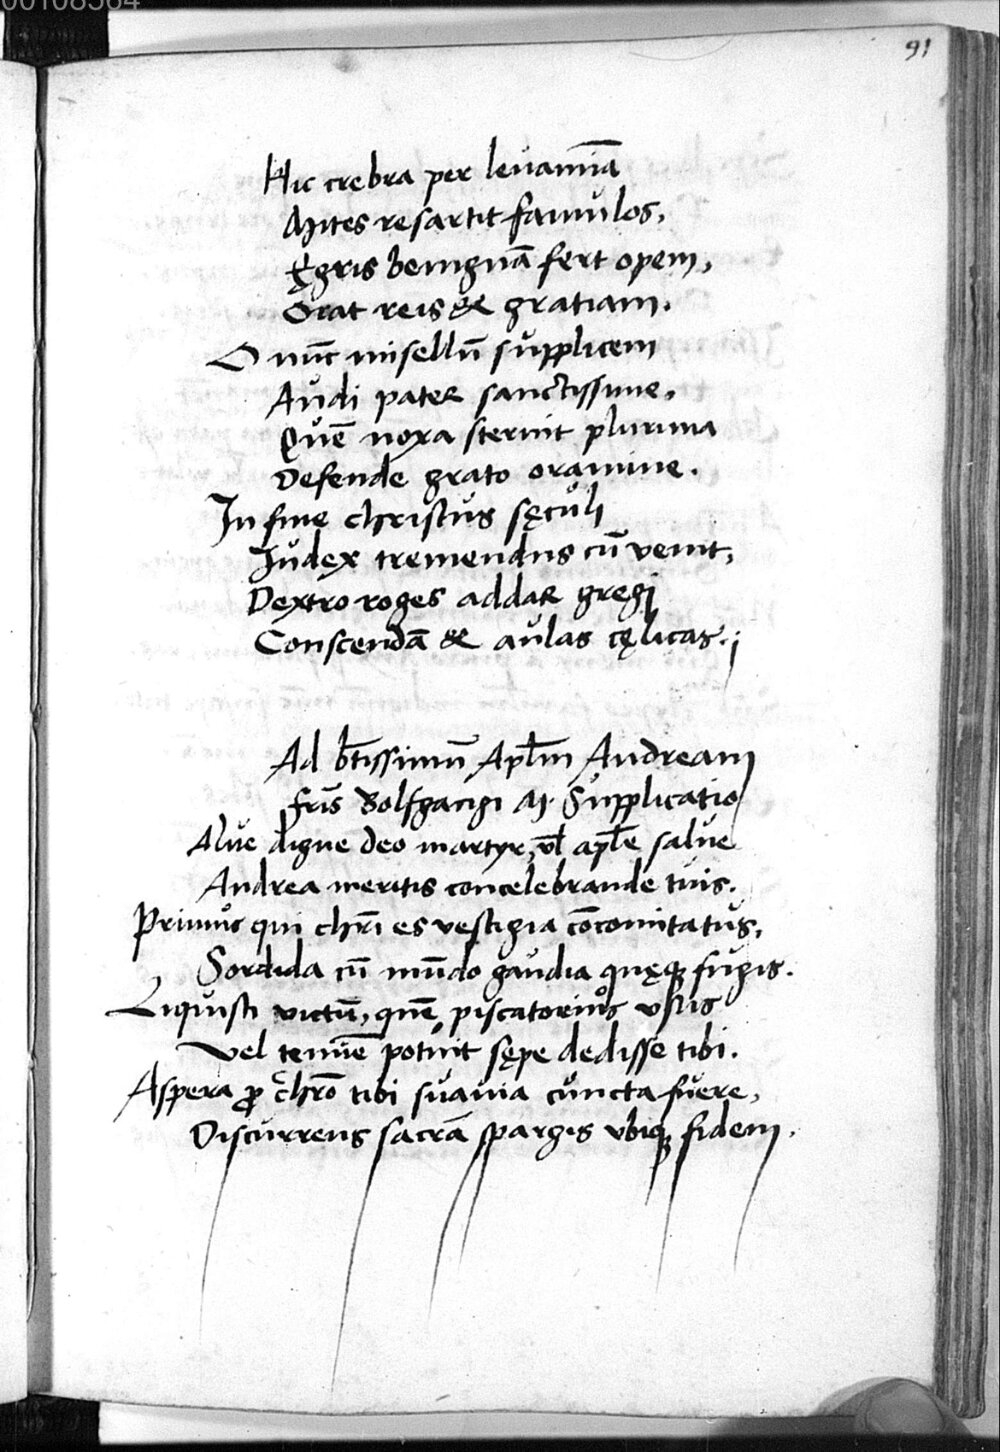 00108564
91
Hic crebra per levamīa
Mites resartit famulos,
Ęgris benignā fert opem,
Orat reis & gratiam.
O nūc misellū supplicem
Audi pater sanctissime,
Quē noxa sternit plurima
Defende grato oramine.
In fine christus sęculi
Iudex tremendus cū venit,
Dextro roges addar gregi
Conscendā & aulas cęlicas.;
Ad btīssimū Aplm̄ Andream
fris̄ Bolfgangi M. Supplicatio
Alve digne deo martyr, vl̄ aplē salve
Andrea meritis concelebrande tuis.
Primus qui chrī es vestigia cōcomitatus,
Sordida cū mūdo gaudia quęque fugis.
Liquisti victū, quē piscatorius usus
Vel tenuē potuit sępe dedisse tibi.
Aspera ꝓ chrō tibi suavia cuncta fuere,
Discurrens sacrā spargis ubique fidem.